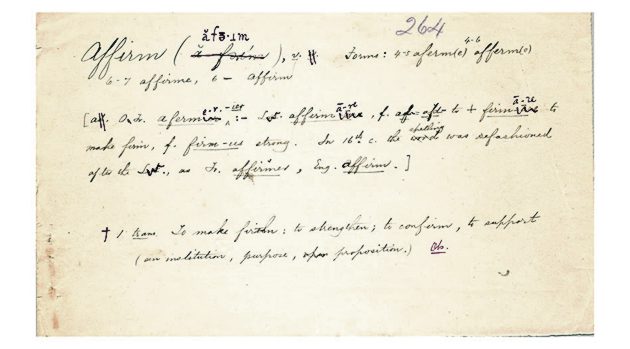 264
ăfə̄·ɹm
Affirm (ă fə̄ɹm), v. Forms: 4-5 aferm(e) 4-6 afferm(e)
6-7 affirme, 6- Affirm
[a. O.Fr. afermer :- Lat. affirmāre, f. af- = ad- to + firmāre to
make firm, f. firm-us strong. In 16th c. the spelling was refashioned
after the Lat., as Fr. affirmer, Eng. affirm.]
† 1. trans. To make firm; to strengthen; to confirm, to support
(an institution, purpose, proposition.) Obs.